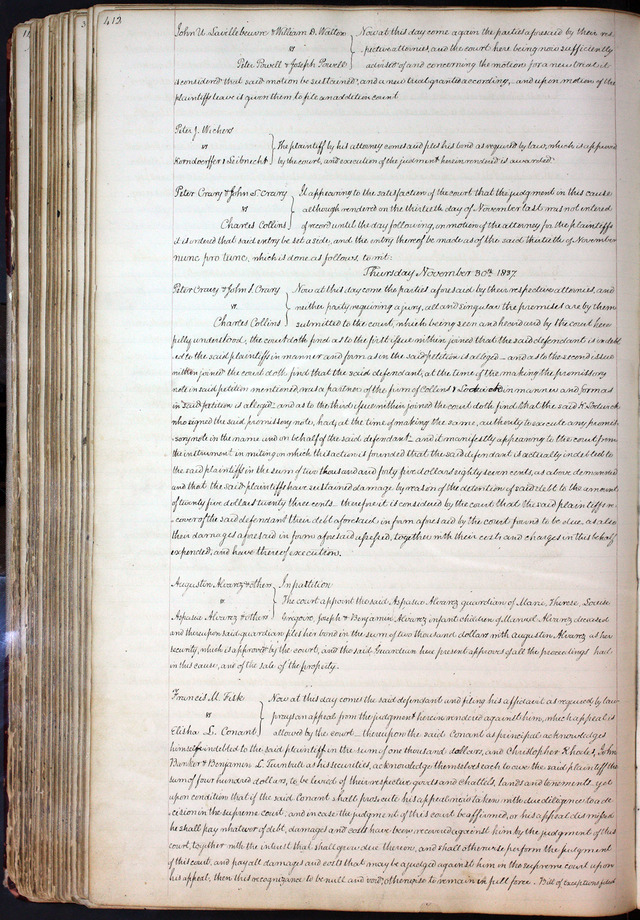 412
John U Savillebeuvre & William D. Walton } Now at this day come again the parties aforesaid by their res-
vs } pective attornies, and the court here being now sufficiently
Peter Powell & Joseph Powell } advised of and concerning the motion for a new trial it
is considered that said motion be sustained, and a new trial granted according, – and upon motion of the
plaintiffs leave is given them to file an addition count
Peter J. Wickers
vs } The plaintiff by his attorney comes and files his bond as required by law, which is approved
Korndoerffer & Leibnecht } by the court, and execution of the judgment herein rendered is awarded.
Peter Crawy & John S. Crawy } It appearing to the satisfaction of the court that the judgment in this cause
vs } although rendered on the thirtieth day of November last was not entered
Charles Collins } of record until the day following, on motion of the attorney for the plaintiffs
it is ordered that said entry be set aside, and the entry thereof be made as of the said thirtieth of November
nunc pro tunc, which is done as follows, to wit:
Thursday November 30th 1837.
Peter Crawy & John S. Crawy } Now at this day come the parties aforesaid by their respective attornies, and
vs. } neither party requiring a jury, all and singular the premises are by them
Charles Collins } submitted to the court, which being seen and heard and by the court here
fully understood, the court doth find as to the first issue within joined that the said defendant is indebt
ed to the said plaintiffs in manner and form as in the said petition is alleged – and as to the second issue
within joined the court doth find that the said defendant, at the time of the making the promissory
note in said petition mentioned, was a partner of the firm of Collins & Lodwick in manner and form as
in said petition is alleged – and as to the third issue within joined the court doth find that the said K Lodwick
who signed the said promissory note, had, at the time of making the same, authority to execute any promis-
sory note in the name and on behalf of the said defendant – and it manifestly appearing to the court from
the instrument in writing on which this action is founded that the said defendant is actually indebted to
the said plaintiffs in the sum of two thousand and forty five dollars eighty seven cents, as above demanded
and that the said plaintiffs have sustained damage by reason of the detention of said debt to the amount
of twenty five dollars twenty three cents – therefore it is considered by the court that the said plaintiffs re-
cover of the said defendant their debt aforesaid in form aforesaid by the court found to be due, as also
their damages aforesaid in form aforesaid assessed, together with their costs and charges in this behalf
expended, and have thereof execution.
Augustin Alvarez & others } In partition
vs } The court appoint the said Aspasia Alvarez guardian of Marie, Therese, Louise
Aspasia Alvarez & others } Gregoire, Joseph & Benjamin Alvarez infant children of Manuel Alvarez deceased
and thereupon said guardian files her bond in the sum of two thousand dollars with Augustin Alvarez as her
security, which is approved by the court, and the said Guardian here present approves of all the proceedings had
in this cause, and of the sale of the property.
Francis M. Fisk } Now at this day comes the said defendant and filing his affidavit as required by law
vs } prays an appeal from the judgment herein rendered against him, which appeal is
Elisha L. Conant } allowed by the court – thereupon the said Conant as principal acknowledges
himself indebted to the said plaintiff in the sum of one thousand dollars, and Christopher Rhodes, John
Bunker & Benjamin L. Turnbull as his securities, acknowledge themselves each to owe the said plaintiff the
sum of four hundred dollars, to be levied of their respective goods and chattels, lands and tenements, yet
upon condition that if the said Conant shall prosecute his appeal now taken with due diligence to a de-
cision in the supreme court, and in case the judgment of this court be affirmed, or his appeal dismissed
he shall pay whatever of debt, damages and costs have been recovered against him by the judgment of this
court, together with the interest that shall grow due thereon, and shall otherwise perform the judgment
of this court, and pay all damages and costs that may be ajudged against him in the supreme court upon
his appeal; then this recognizance to be null and void; otherwise to remain in full force. Bill of exceptions filed